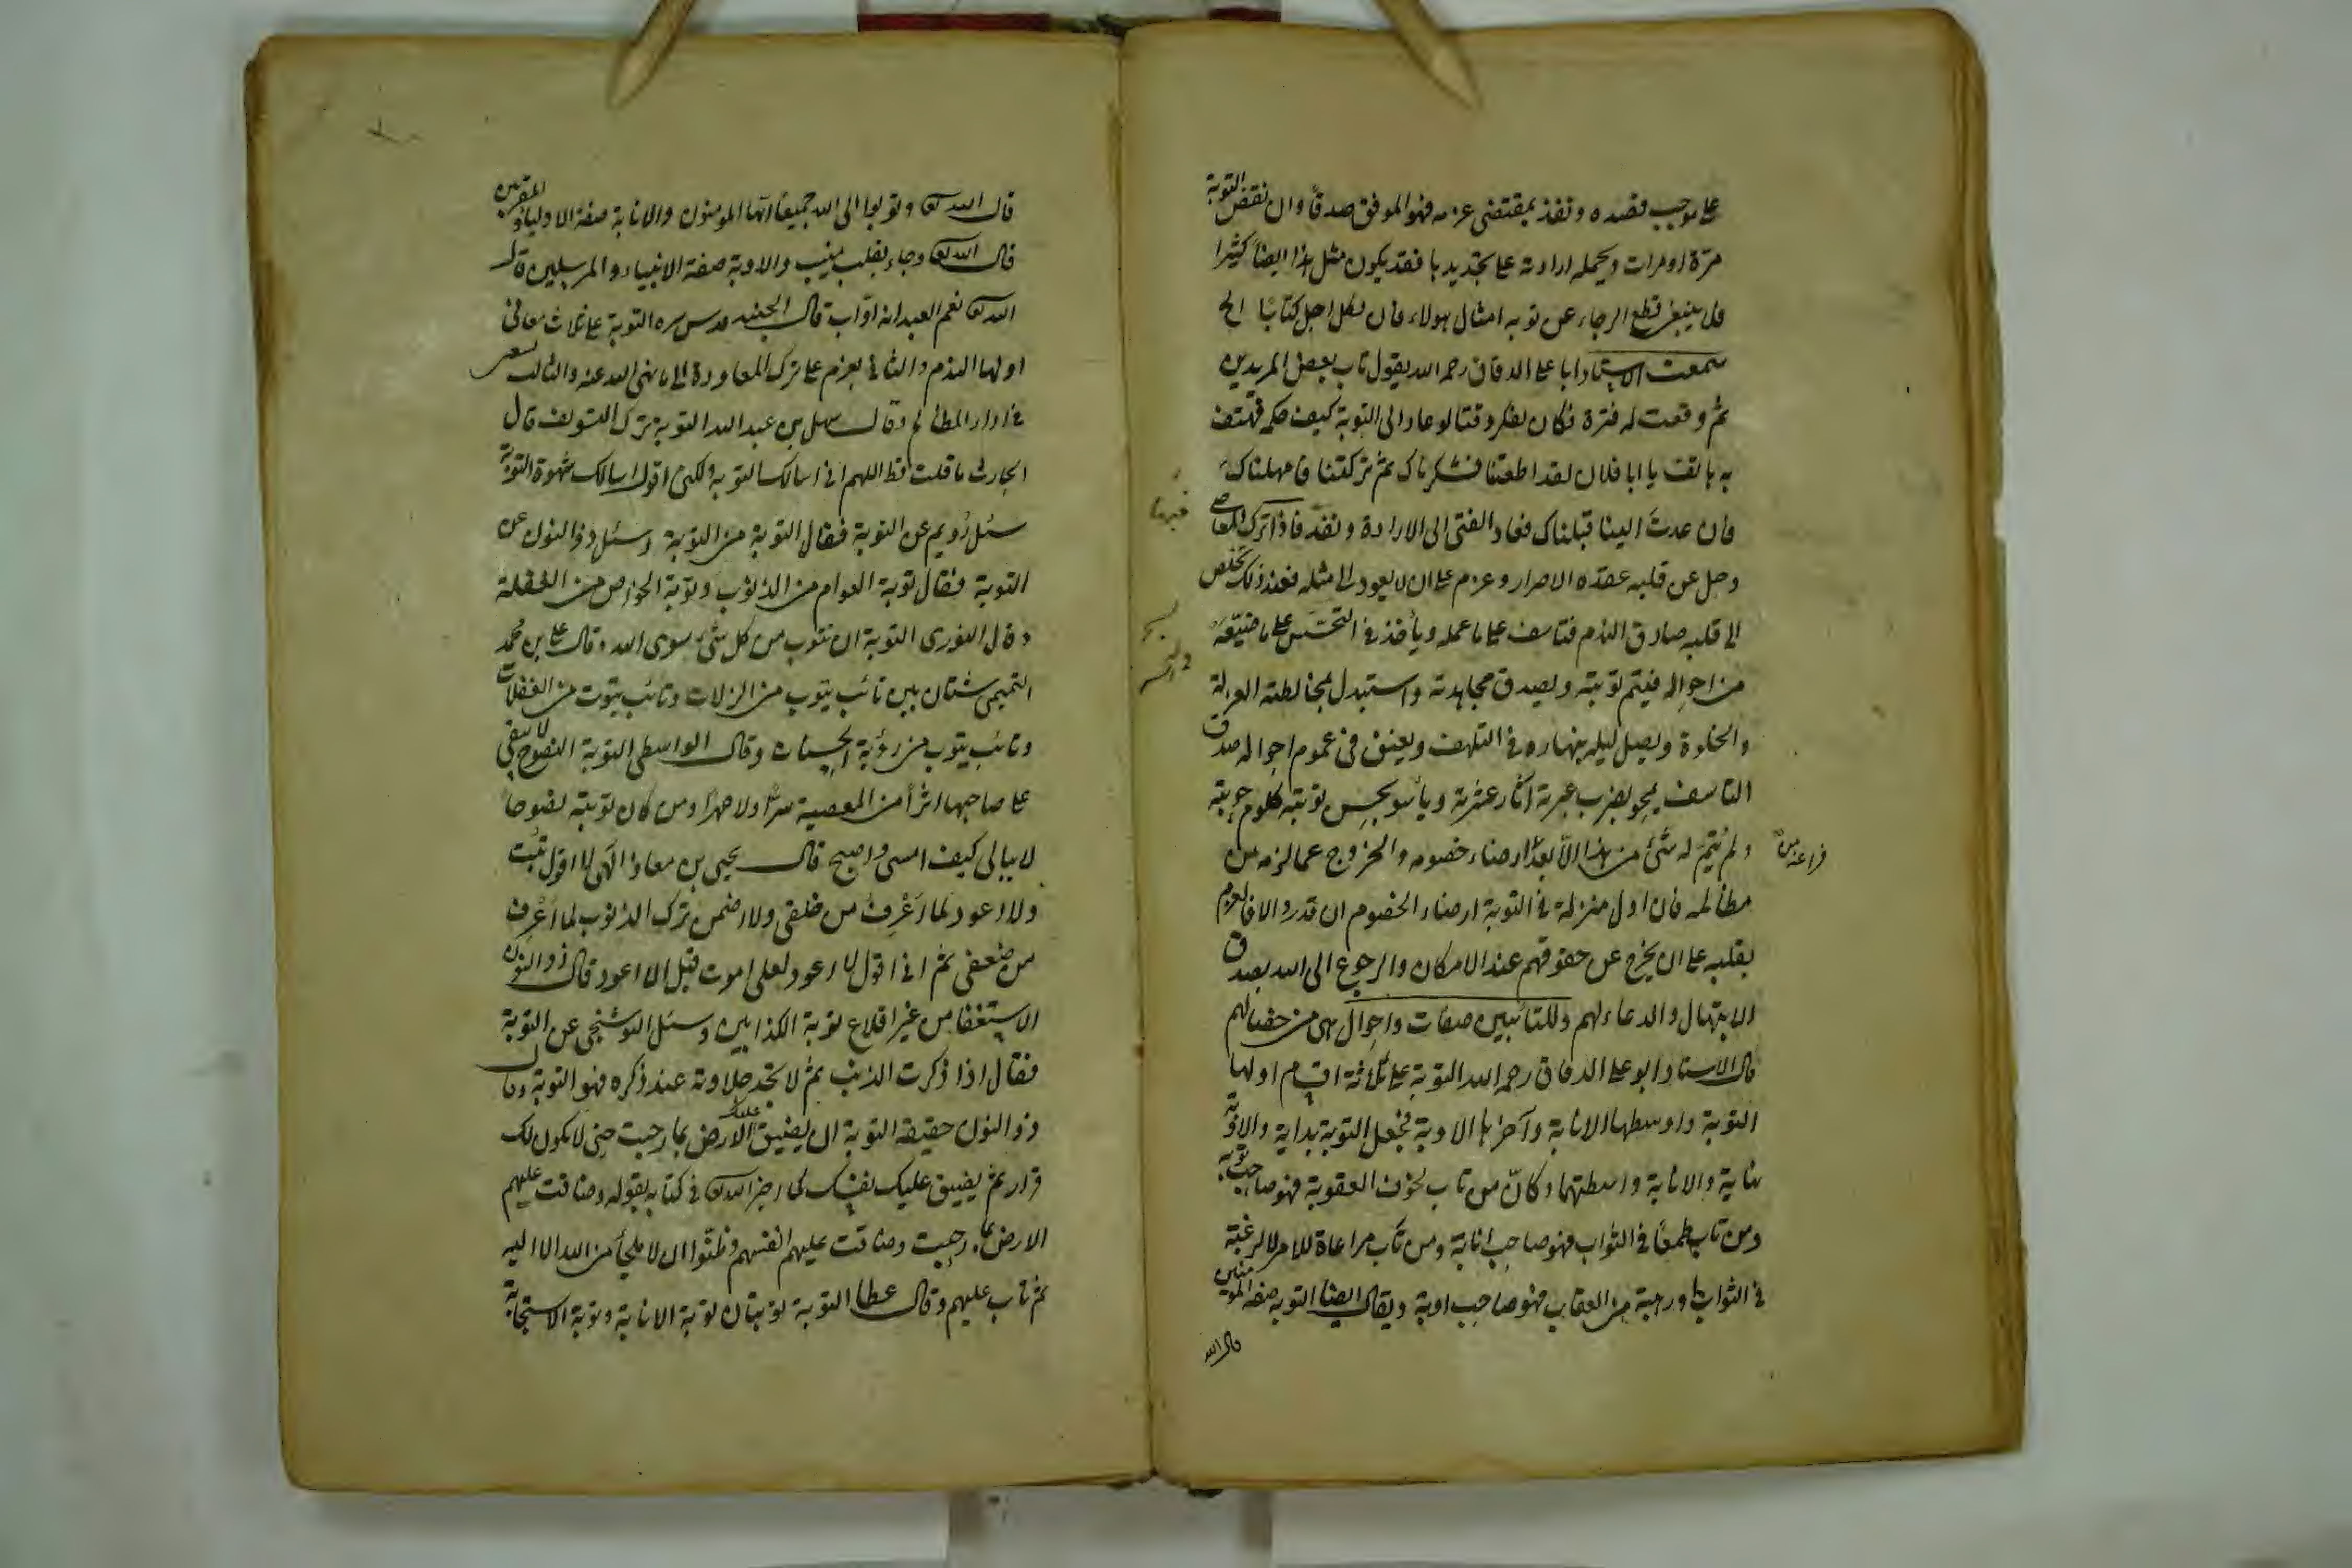 على موجب قصده ونفذ بمقتضى عزمه فهو الموفق صدقًا وان نقض التوبة
مرة او مرات ويحمله ارادته على تجديدها فقد يكون مثل هذا ايضاً كثيرا
فلا ينبغى قطع الرجاء عن توبة امثال هولاء فان لكل اجل كتابًا الخ
سمعت الاستاد ابا على الدقاق رحمه الله يقول تاب بعض المريدين
ثم وقعت له فترة فكان يفكر وقتا لو عاد الى التوبة كيف حكمه فهتف
به هاتف يا ابا فلان لقد اطعتنا فشكرناك ثم تركتنا فامهلناك
فان عدت الينا قبلناك فعاد الفتى الى الارادة ونفذ فاذا ترك المعاصى
وحل عن قلبه عقدة الاصرار وعزم على ان لا يعود الى مثله فعند ذلك تخلص
الى قلبه صادق الندم فتاسف على ما عمله ويأخذ فى التحسر على ما ضيّعه
من احواله فيتم توبته ويصدق مجاهدته واستبدل بمخالطته العزلة
والخلوة ويصل ليله بنهاره فى التلهف ويعنق فى عموم احواله صدق
التاسف يمحو بضرب عبرته اثار عثرته ويأسو بحسن توبته كلوم حوبته
ولم يتم له شئ من هذا الا بعد ارضاء خصومه والخروج عما لزمه من
مظالمه فان اول منزلة فى التوبة ارضاء الخصوم ان قدر والا فالعزم
بقلبه على ان يخرج عن حقوقهم عند الامكان والرجوع الى الله بصدق
الابتهال والدعاء لهم وللتائبين صفات واحوال هى من خصالهم
قال الاستاد ابو على الدقاق رحمه الله التوبة على ثلاثة اقسام اولها
التوبة واوسطها الانابة وآخرها الاوبة فجعل التوبة بداية والاوبة
نهاية والانابة واسطتهما وكانّ من تاب لخوف العقوبة فهو صاحب توبة
ومن تاب طمعًا فى الثواب فهو صاحب انابة ومن تاب مراعاة للامر لا لرغبة
فى الثواب او رهبة من العقاب فهو صاحب اوبة ويقال ايضا التوبة صفة المومنين
قال الله
قال الله تع وتوبوا الى الله جميعًا ايها المومنون والانابة صفة الاولياء والمقربين
قال الله تع وجاء بقلب منيب والاوبة صفة الانبياء والمرسلين قال
الله تع نعم العبد انه اوّاب قال الجنيد قدس سره التوبة على ثلاث معانى
اولها الندم والثانى يعزم على ترك المعاودة الى ما نهى الله عنه والثالث يسعى
فى اداء المظالم وقال سهل بن عبد الله التوبة ترك التسويف قال
الحارث ما قلت قط اللهم انى اسالك التوبة ولكنى اقول اسالك شهوة التوبة
سئل رُويم عن التوبة فقال التوبة من التوبة وسئل ذو النون عن
التوبة فقال توبة العوام من الذنوب وتوبة الخواص من الغفلة
وقال النورى التوبة ان تتوب من كل شئ سوى الله وقال على بن محمد
التميمى شتان بين تائب يتوب من الزلات وتائب يتوب من الغفلات
وتائب يتوب من رؤية الحسنات وقال الواسطى التوبة النصوح لا تبقى
على صاحبها اثرًا من المعصية سرًا ولا جهرًا ومن كان توبته نصوحا
لا يبالى كيف امسى واصبح قال يحيى بن معاذ الهى لا اقول تبت
ولا اعود لما اَعْرِفُ من خلقى ولا اضمن ترك الذنوب لما اَعْرِف
من ضعفى ثم انى اقول لا اعود لعلى اموت قبل ان اعود قال ذو النون
الاستغفار من غير اقلاع توبة الكذابين وسئل البوشنجى عن التوبة
فقال اذا ذكرت الذنب ثم لا تجد حلاوته عند ذكره فهو التوبة وقال
ذو النون حقيقة التوبة ان يضيق عليك الارض بما رحبت حتى لا يكون لك
قرار ثم يضيق عليك نفسك كما اخبر الله تع فى كتابه بقوله وضاقت عليهم
الارض بما رحبت وضاقت عليهم انفسهم وظنّوا ان لا ملجأ من الله الا اليه
ثم تاب عليهم وقال عطا التوبة توبتان توبة الانابة وتوبة الاستجابة